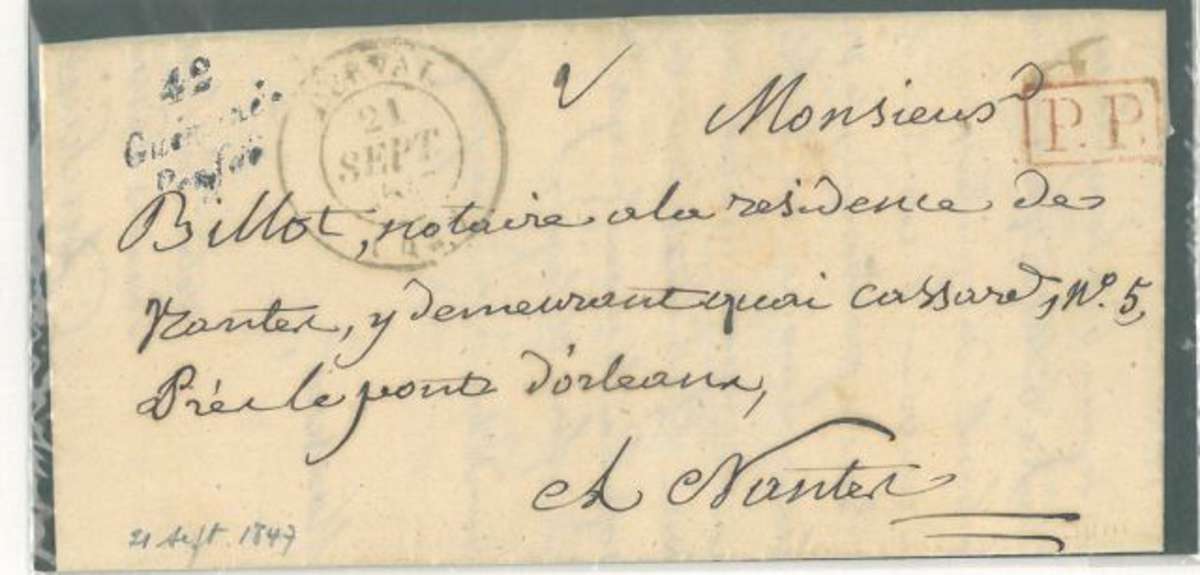 42
P.P.
21
SEPT
Monsieur
Billot, notaire a la residence de
Nantes, y demeurant quai cassard, N.º 5,
Près le pont d'orleans,
A Nantes
21 sept. 1847